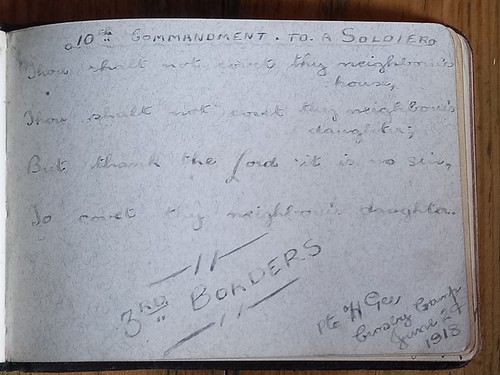 10th COMMANDMENT. TO. A SOLDIER.
Thou shalt not covet thy neighbour's
house,
Thou shalt not covet thy neighbour's
daughter;
But thank the Lord it is no sin,
To covet thy neighbour's daughter.
3RD BORDERS
Pte H Gee
Camp
June 27
1918